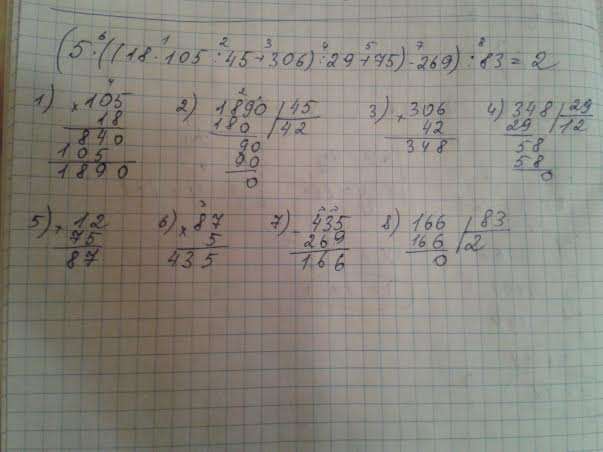 (5·((18·105:45+306):29+75)-269):83=2
6 1 2 3 4 5 7 8
1) 105 2) 1890 | 45 3) 306 4) 348 | 29
× 18 180 42 + 42 29 12
840 90 348 58
105 90 58
1890 0 0
5) + 12 6) × 87 7) - 435 8) 166 | 83
75 5 269 166 2
87 435 166 0